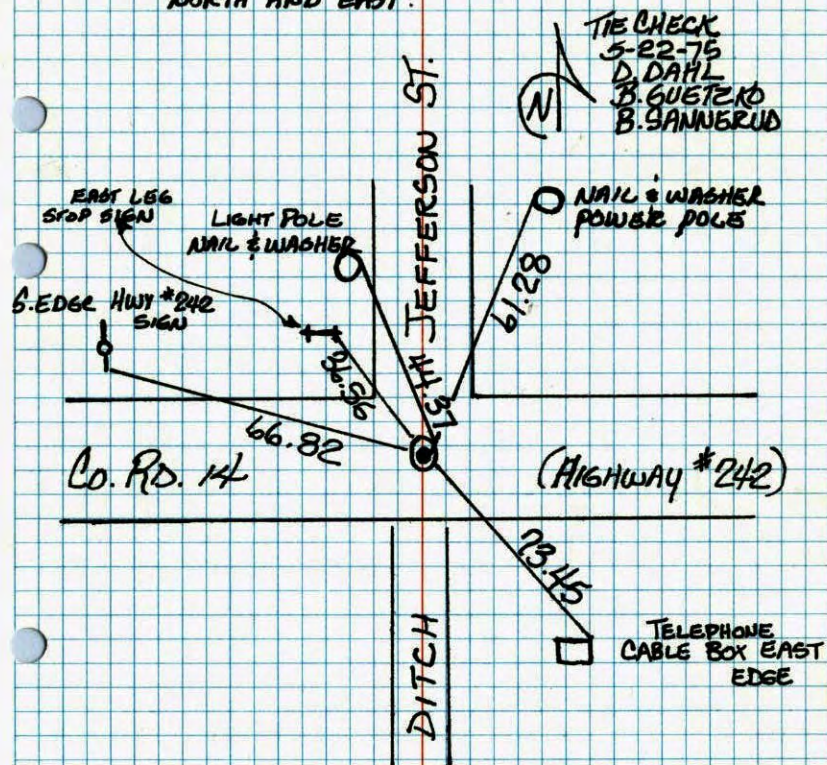 NORTH AND EAST.
TIE CHECK
5-22-75
D. DAHL
B. GUETZKO
B. SANNERUD
N
JEFFERSON ST.
EAST LEG
STOP SIGN
LIGHT POLE
NAIL & WASHER
NAIL & WASHER
POWER POLE
S. EDGE HWY #242
SIGN
61.28
36.56
37.44
66.82
CO. RD. 14
(HIGHWAY #242)
73.45
DITCH
TELEPHONE
CABLE BOX EAST
EDGE